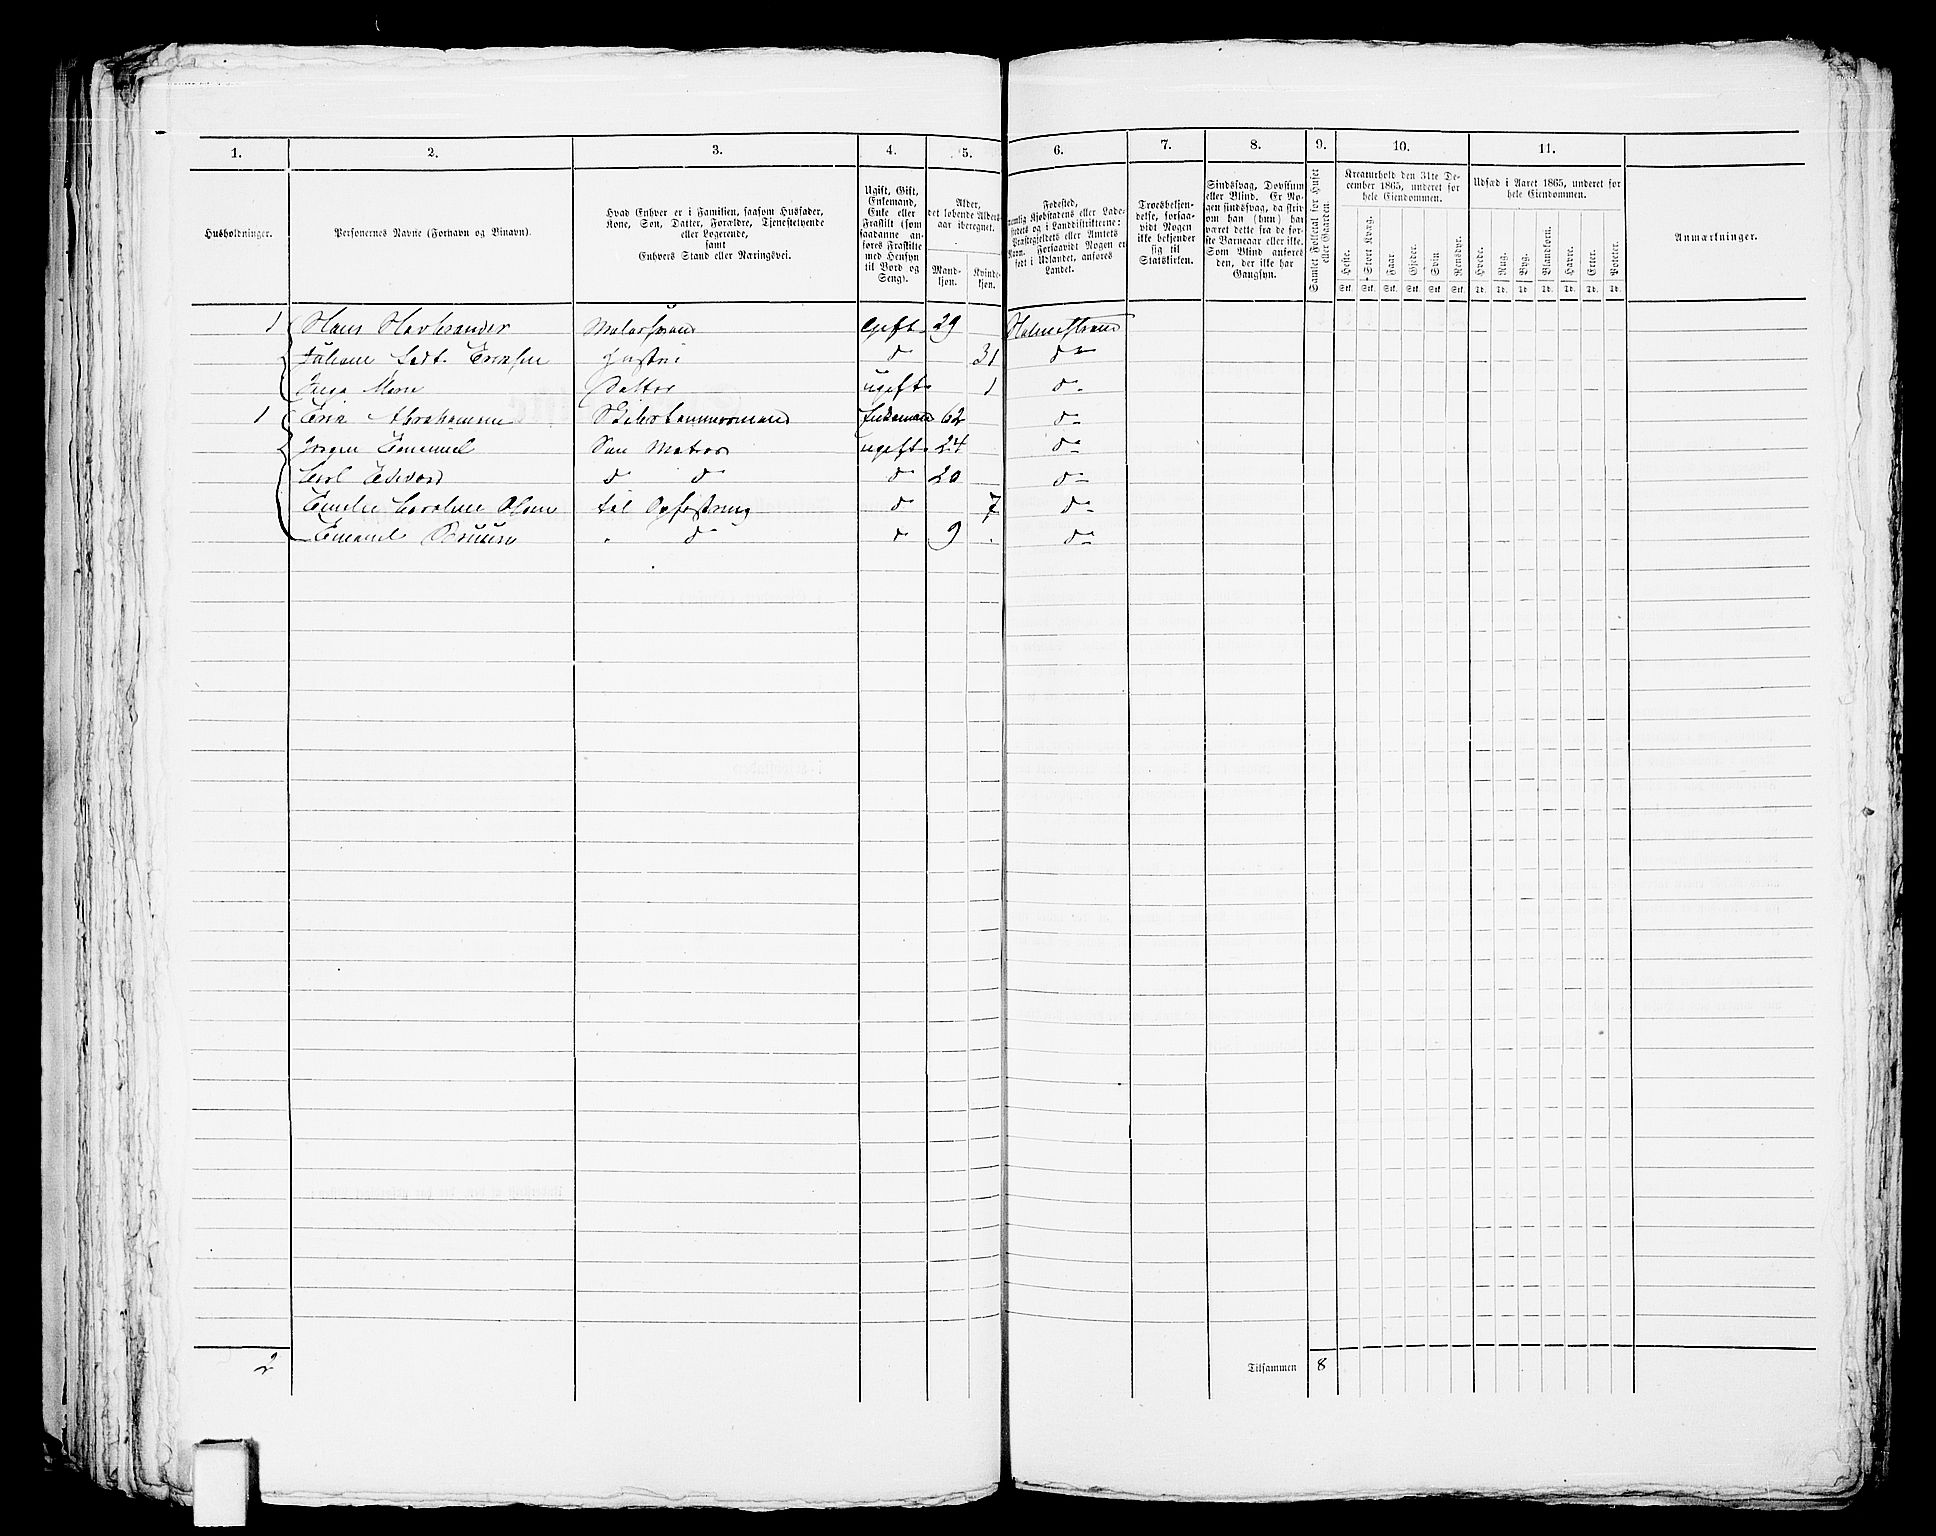 1. 2. 3. 4. 5. 6. 7. 8. 9. 10. 11.
Husholdninger.
Personernes Navne (Fornavn og Binavn).
Hvad Enhver er i Familien, saasom Husfader,
Kone, Søn, Datter, Forældre, Tjenestetyende
eller Logerende,
samt
Enhvers Stand eller Næringsvei.
Ugift, Gift,
Enkemand,
Enke eller
Fraskilt (som
saadanne an-
føres Fraskilte
med Hensyn
til Bord og
Seng).
Alder,
det løbende Alders-
aar iberegnet.
Mand-
kjøn.
Kvinde-
kjøn.
Fødested,
nemlig Kjøbstadens eller Lade-
stedets og i Landdistrikterne:
Præstegjeldets eller Amtets
Navn. Forsaavidt Nogen er
født i Udlandet, anføres
Landet.
Troesbekjen-
delse, forsaa-
vidt Nogen
ikke bekjender
sig til
Statskirken.
Sindssvag, Døvstum
eller Blind. Er No-
gen sindssvag, da skriv
om han (hun) har
været dette fra de før-
ste Barneaar eller ikke.
Som Blind anføres
den, der ikke har
Gangsyn.
Samlet Folketal for Huset
eller Gaarden.
Kreaturhold den 31te De-
cember 1865, underet for
hele Eiendommen.
Heste. Stort Kvæg. Faar Gjeder. Svin Rensdyr.
Stk. Stk. Stk. Stk. Stk. Stk.
Udsæd i Aaret 1865, underet for
hele Eiendommen.
Hvede. Rug. Byg. Blandkorn. Havre. Erter. Poteter.
Td. Td. Td. Td. Td. Td. Td.
Anmærkninger.
1 Hans Matros Gift 29 Holmestrand
Eriksen d 31 d
Datter ugift 1 d
1 Erik Abrahamsen Enkemand 62 d
Jørgen Emanuel Søn Matros ugift 24 d
Carl Edvard d d d 20 d
Emilie Caroline Olsen til Opfostring d 7 d
Emanuel d d 9 d
2 Tilsammen 8